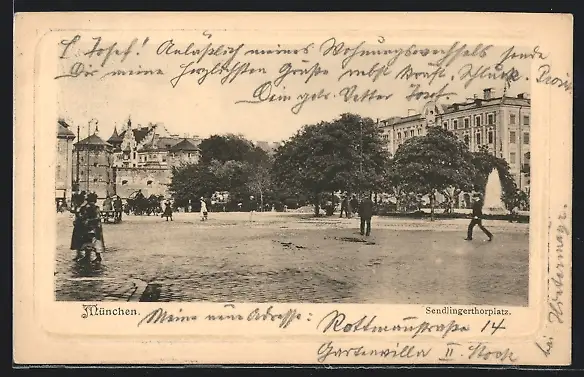 L. Josef! Anläßlich meines Wohnungswechsels sende
Dir meine herzlichsten Grüße nebst kräft. Schluck Prosit
Dein getr. Vetter Josef
München.
Meine neue Adresse: Rottmannstraße 14
Sendlingerthorplatz.
Gartenvilla II. Stock
bei Hintermayr